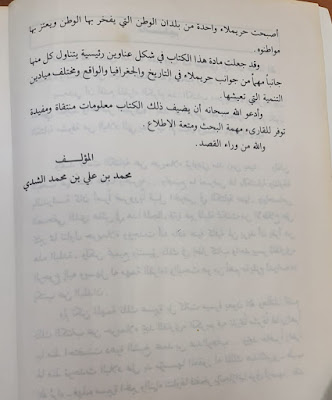 أصبحت حريملاء واحدة من بلدان الوطن التي يفخر بها الوطن ويعتز بها
مواطنوه.
وقد جعلت مادة هذا الكتاب في شكل عناوين رئيسية يتناول كل منها
جانباً مهماً من جوانب حريملاء في التاريخ والجغرافيا والواقع ومختلف ميادين
التنمية التي تعيشها.
وأدعو الله سبحانه أن يضيف ذلك الكتاب معلومات منتقاة ومفيدة
توفر للقارىء مهمة البحث ومتعة الاطلاع.
والله من وراء القصد.
المؤلـــف
محمد بن علي بن محمد الشدي